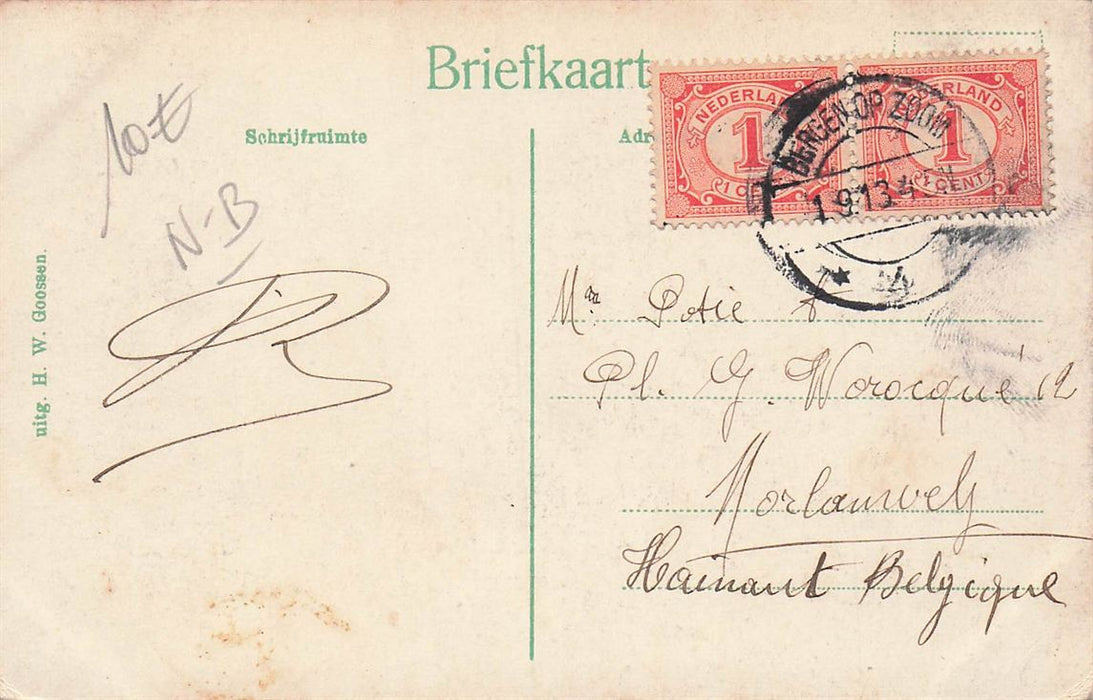 Briefkaart
Schrijfruimte
Adr
NEDERLAND
1
CENT
NEDERLAND
1
CENT
BERGEN-OP-ZOOM
1.9.13.4-N
10€
N-B
uitg. H. W. Goossen.
Mr Potie
Pl. G. Worocque 12
Morlanwelz
Hainaut Belgique